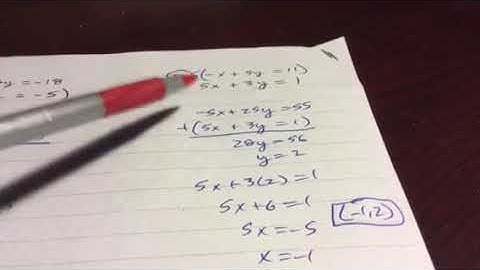 y = -18
= -5)
5(-x + 5y = 11)
5x + 3y = 1
-5x + 25y = 55
+(5x + 3y = 1)
28y = 56
y = 2
5x + 3(2) = 1
5x + 6 = 1
(-1,2)
5x = -5
x = -1